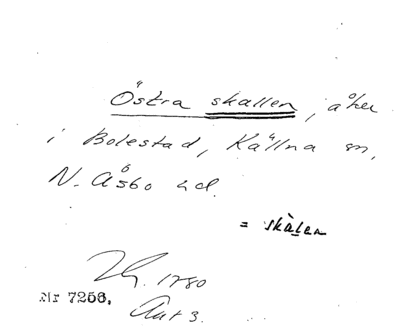 Östra skallen, åker
i Bolestad, Källna sn,
N. Åsbo hd.
= skàlen
1780
Nr 7256.
Akt 3.